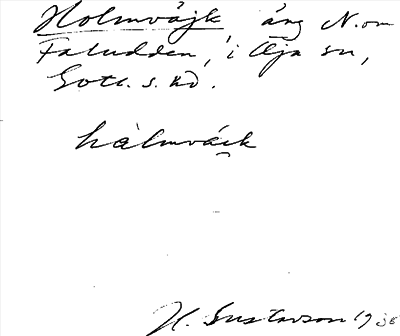 Holmvájk äng N. om
Faludden, i Öja sn,
Gotl. s. hd.
hàlmváik
H. Gustavson 19